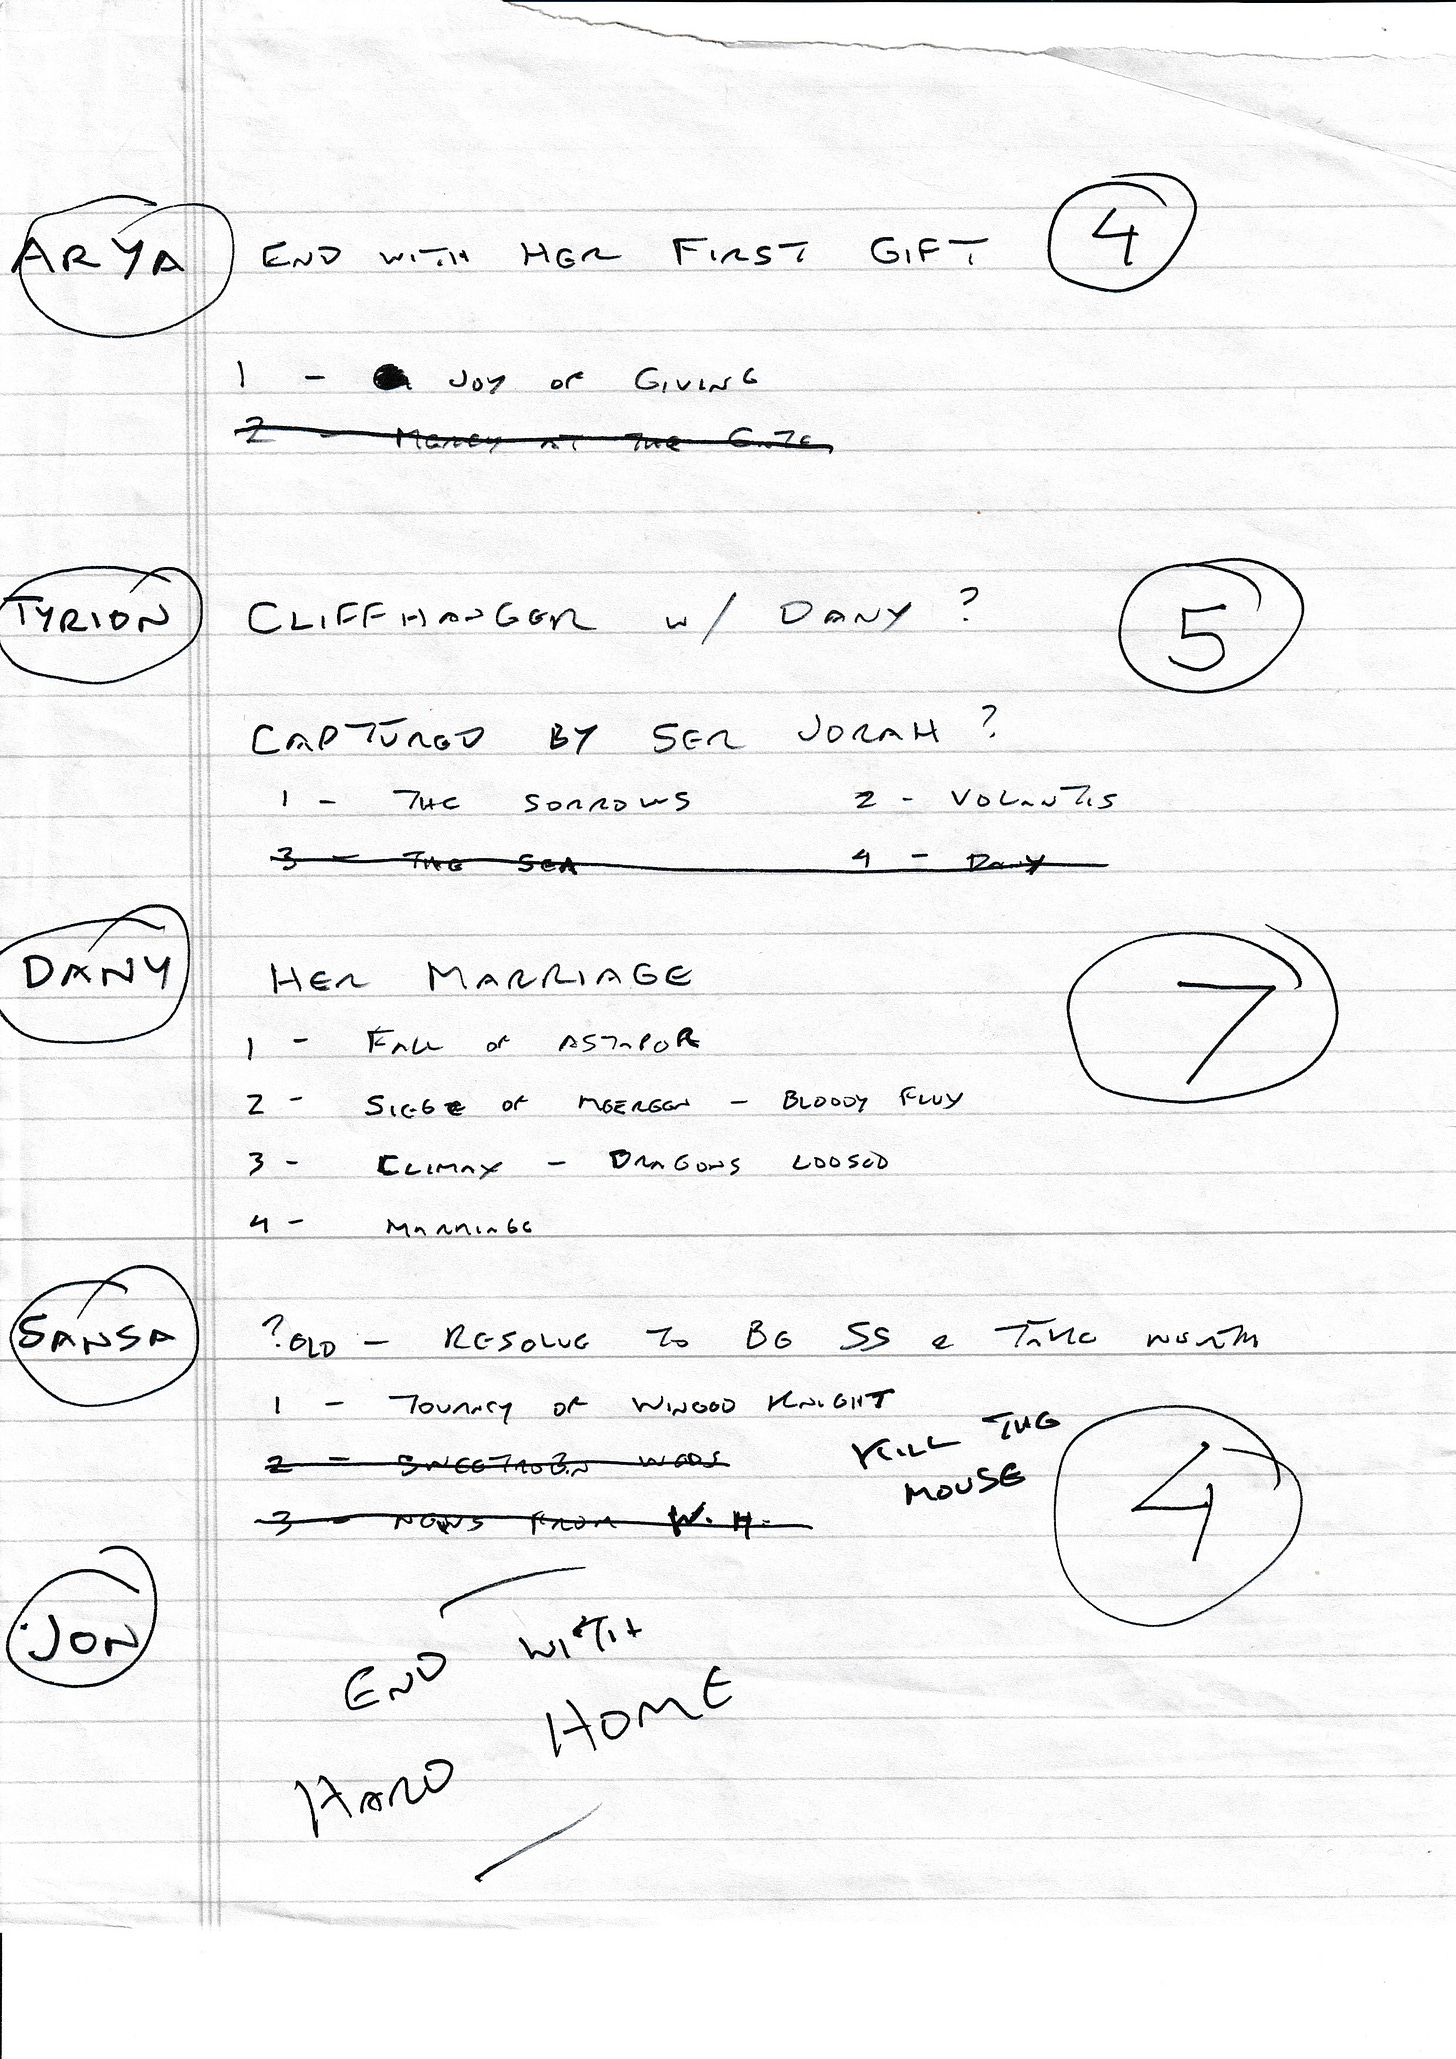 ARYA END WITH HER FIRST GIFT 4
1 - JOY OF GIVING
2 - MERCY AT THE GATE
TYRION CLIFFHANGER W/ DANY? 5
CAPTURED BY SER JORAH?
1 - THE SORROWS 2 - VOLANTIS
3 - THE SEA 4 - DANY
DANY HER MARRIAGE 7
1 - FALL OF ASTAPOR
2 - SIEGE OF MEEREEN - BLOODY FLUX
3 - CLIMAX - DRAGONS LOOSED
4 - MARRIAGE
SANSA ?OLD - RESOLVE TO BE SS & TAKE NORTH
1 - TOURNEY OF WINGED KNIGHT
2 - SWEETROBIN WEDS
KILL THE
MOUSE 4
3 - NEWS FROM W.H.
JON
END WITH
HARD HOME